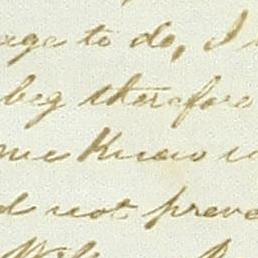 age to do, I
beg therefore
me Know
d not preve